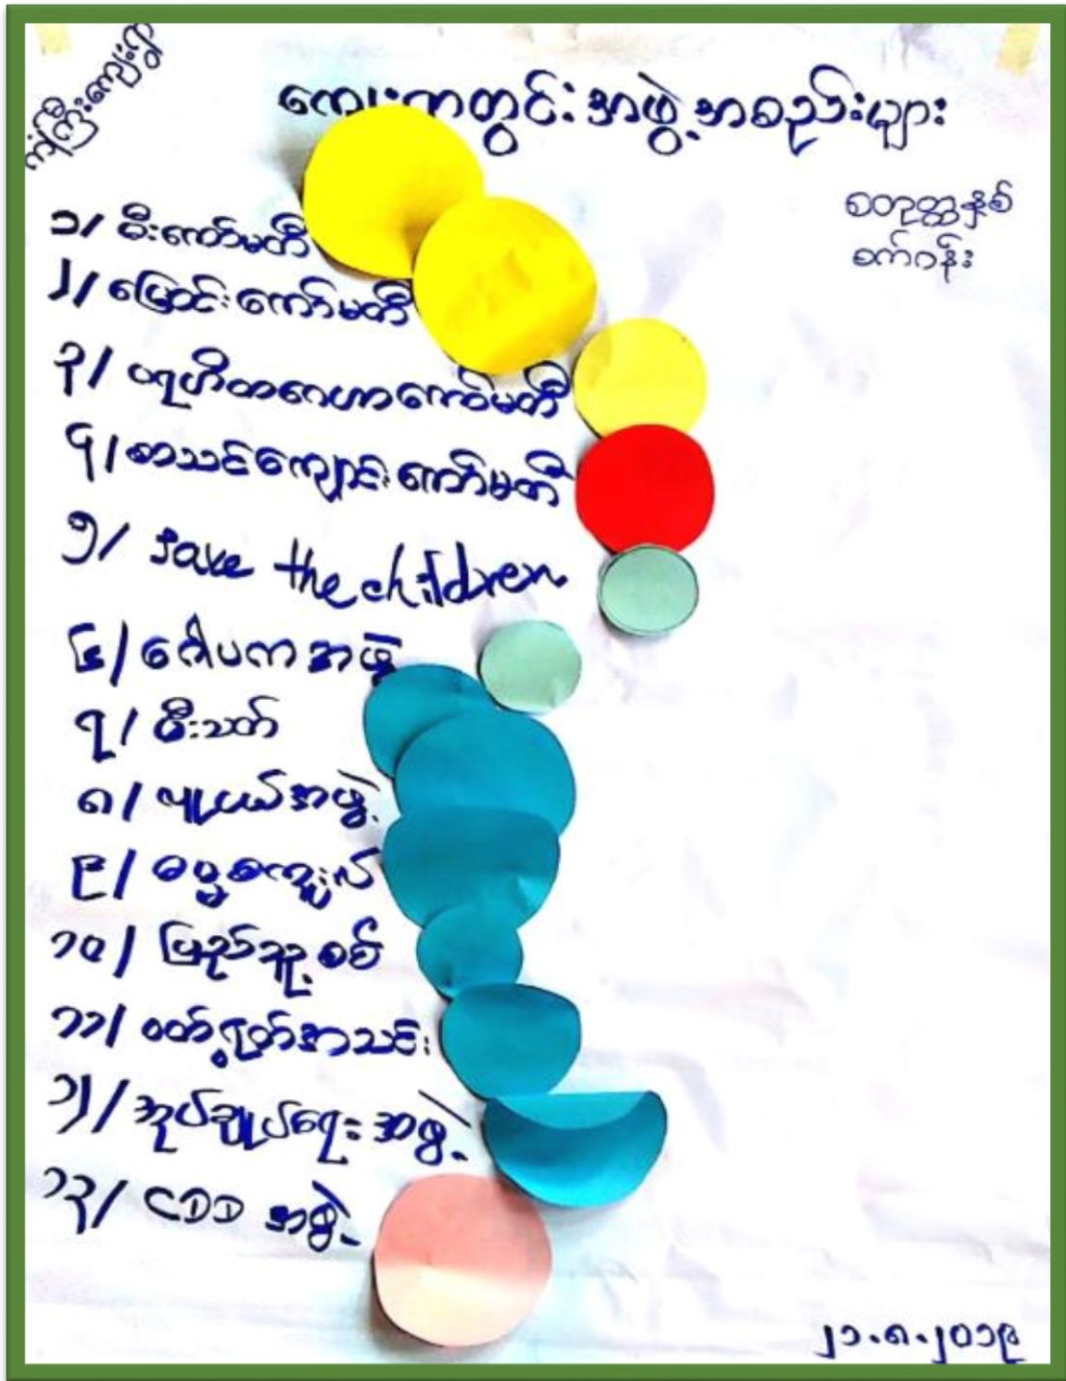 ကံကြီးကျေးရွာ
ကျေးရွာတွင်းအဖွဲ့အစည်းများ
စတုတ္ထနှစ်
စက်ဝန်း
၁/ မီးကော်မတီ
၂/ မြောင်းကော်မတီ
၃/ ပရဟိတဂေဟာကော်မတီ
၄/ စာသင်ကျောင်းကော်မတီ
၅/ save the children
၆/ ဂေါပကအဖွဲ့
၇/ မီးသတ်
၈/ လူငယ်အဖွဲ့
၉/ ဓမ္မစကူးလ်
၁၀/ ပြည်သူ့စစ်
၁၁/ ဝတ်ရွတ်အသင်း
၁၂/ အုပ်ချုပ်ရေးအဖွဲ့
၁၃/ CDD အဖွဲ့
၂၁.၈.၂၀၁၉